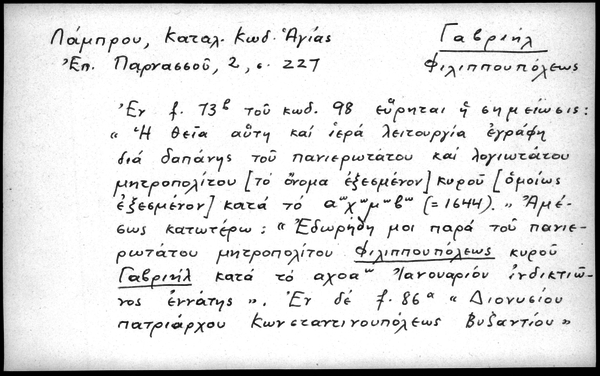 Λάμπρου, Καταλ. Κωδ. Ἁγίας
Γαβριήλ
Ἐπ. Παρνασσοῦ, 2, σ. 227
Φιλιππουπόλεως
Ἐν f. 73β τοῦ κωδ. 98 εὕρηται ἡ σημείωσις:
« Ἡ θεῖα αὕτη καί ἱερά λειτουργία ἐγράφη
διά δαπάνης τοῦ πανιερωτάτου καί λογιωτάτου
μητροπολίτου [τό ὄνομα ἐξεσμένον] κυροῦ [ὁμοίως
ἐξεσμένον] κατά τό αῳχῳμῳβῳ (= 1644). » Ἀμέ-
σως κατωτέρω : « Ἐδωρήθη μοι παρά τοῦ πανιε-
ρωτάτου μητροπολίτου Φιλιππουπόλεως κυροῦ
Γαβριήλ κατά τό αχοαω Ἰανουαρίου ἰνδικτιῶ-
νος ἐννάτης ». Ἐν δέ f. 86α « Διονυσίου
πατριάρχου Κωνσταντινουπόλεως Βυζαντίου »